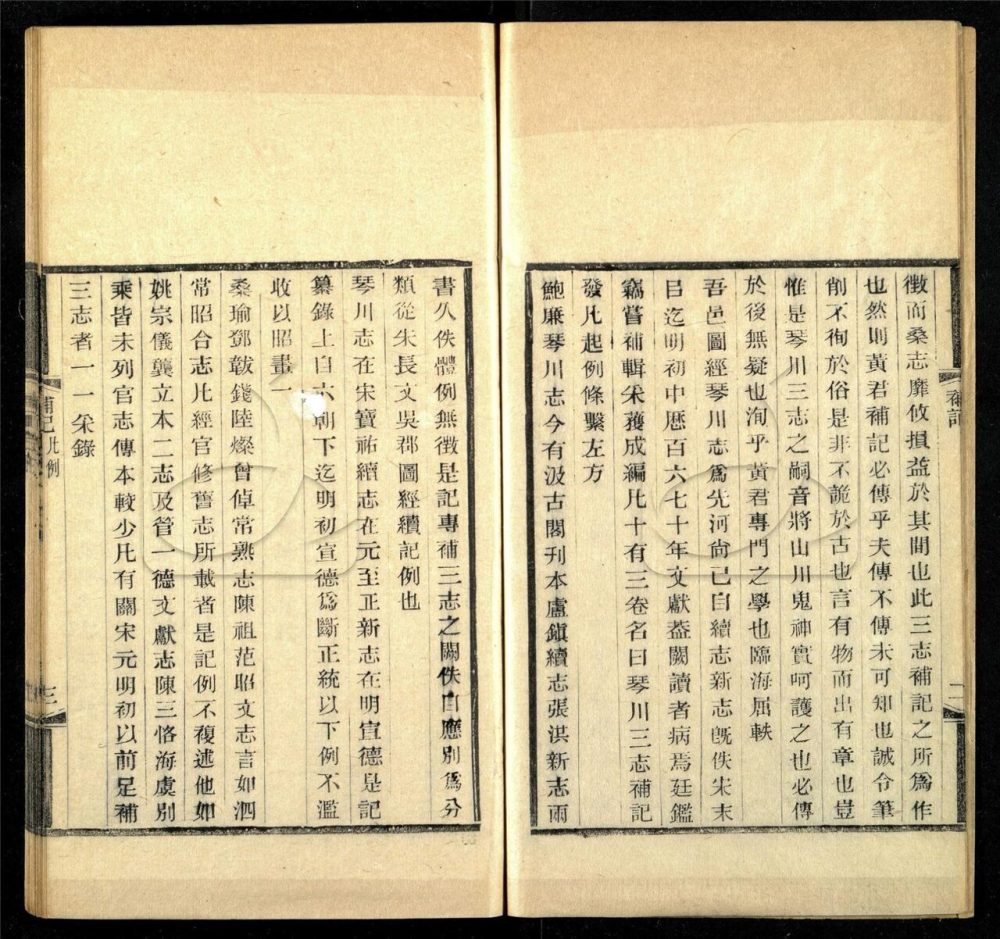 徵而桑志靡攸損益於其間也此三志補記之所爲作
也然則黃君補記必傳乎夫傳不傳未可知也誠令筆
削不徇於俗是非不詭於古也言有物而出有章也豈
惟是琴川三志之嗣音將山川鬼神實呵護之也必傳
於後無疑也洵乎黃君專門之學也臨海屈軼
吾邑圖經琴川志爲先河尙已自續志新志旣佚宋末
㠯迄明初中歷百六七十年文獻葢闕讀者病焉廷鑑
竊嘗補輯采獲成編凡十有三卷名曰琴川三志補記
發凡起例條繫左方
鮑廉琴川志今有汲古閣刊本盧鎭續志張洪新志兩
補記
二
書久佚體例無徵是記專補三志之闕佚自應別爲分
類從朱長文吳郡圖經續記例也
琴川志在宋寶祐續志在元至正新志在明宣德是記
纂錄上自六朝下迄明初宣德爲斷正統以下例不濫
收以昭畫一
桑瑜鄧韍錢陸燦曾倬常熟志陳祖范昭文志言如泗
常昭合志凡經官修舊志所載者是記例不複述他如
姚宗儀龔立本二志及管一德文獻志陳三恪海虞別
乘皆未列官志傳本較少凡有關宋元明初以前足補
三志者一一采錄
補記凡例
三